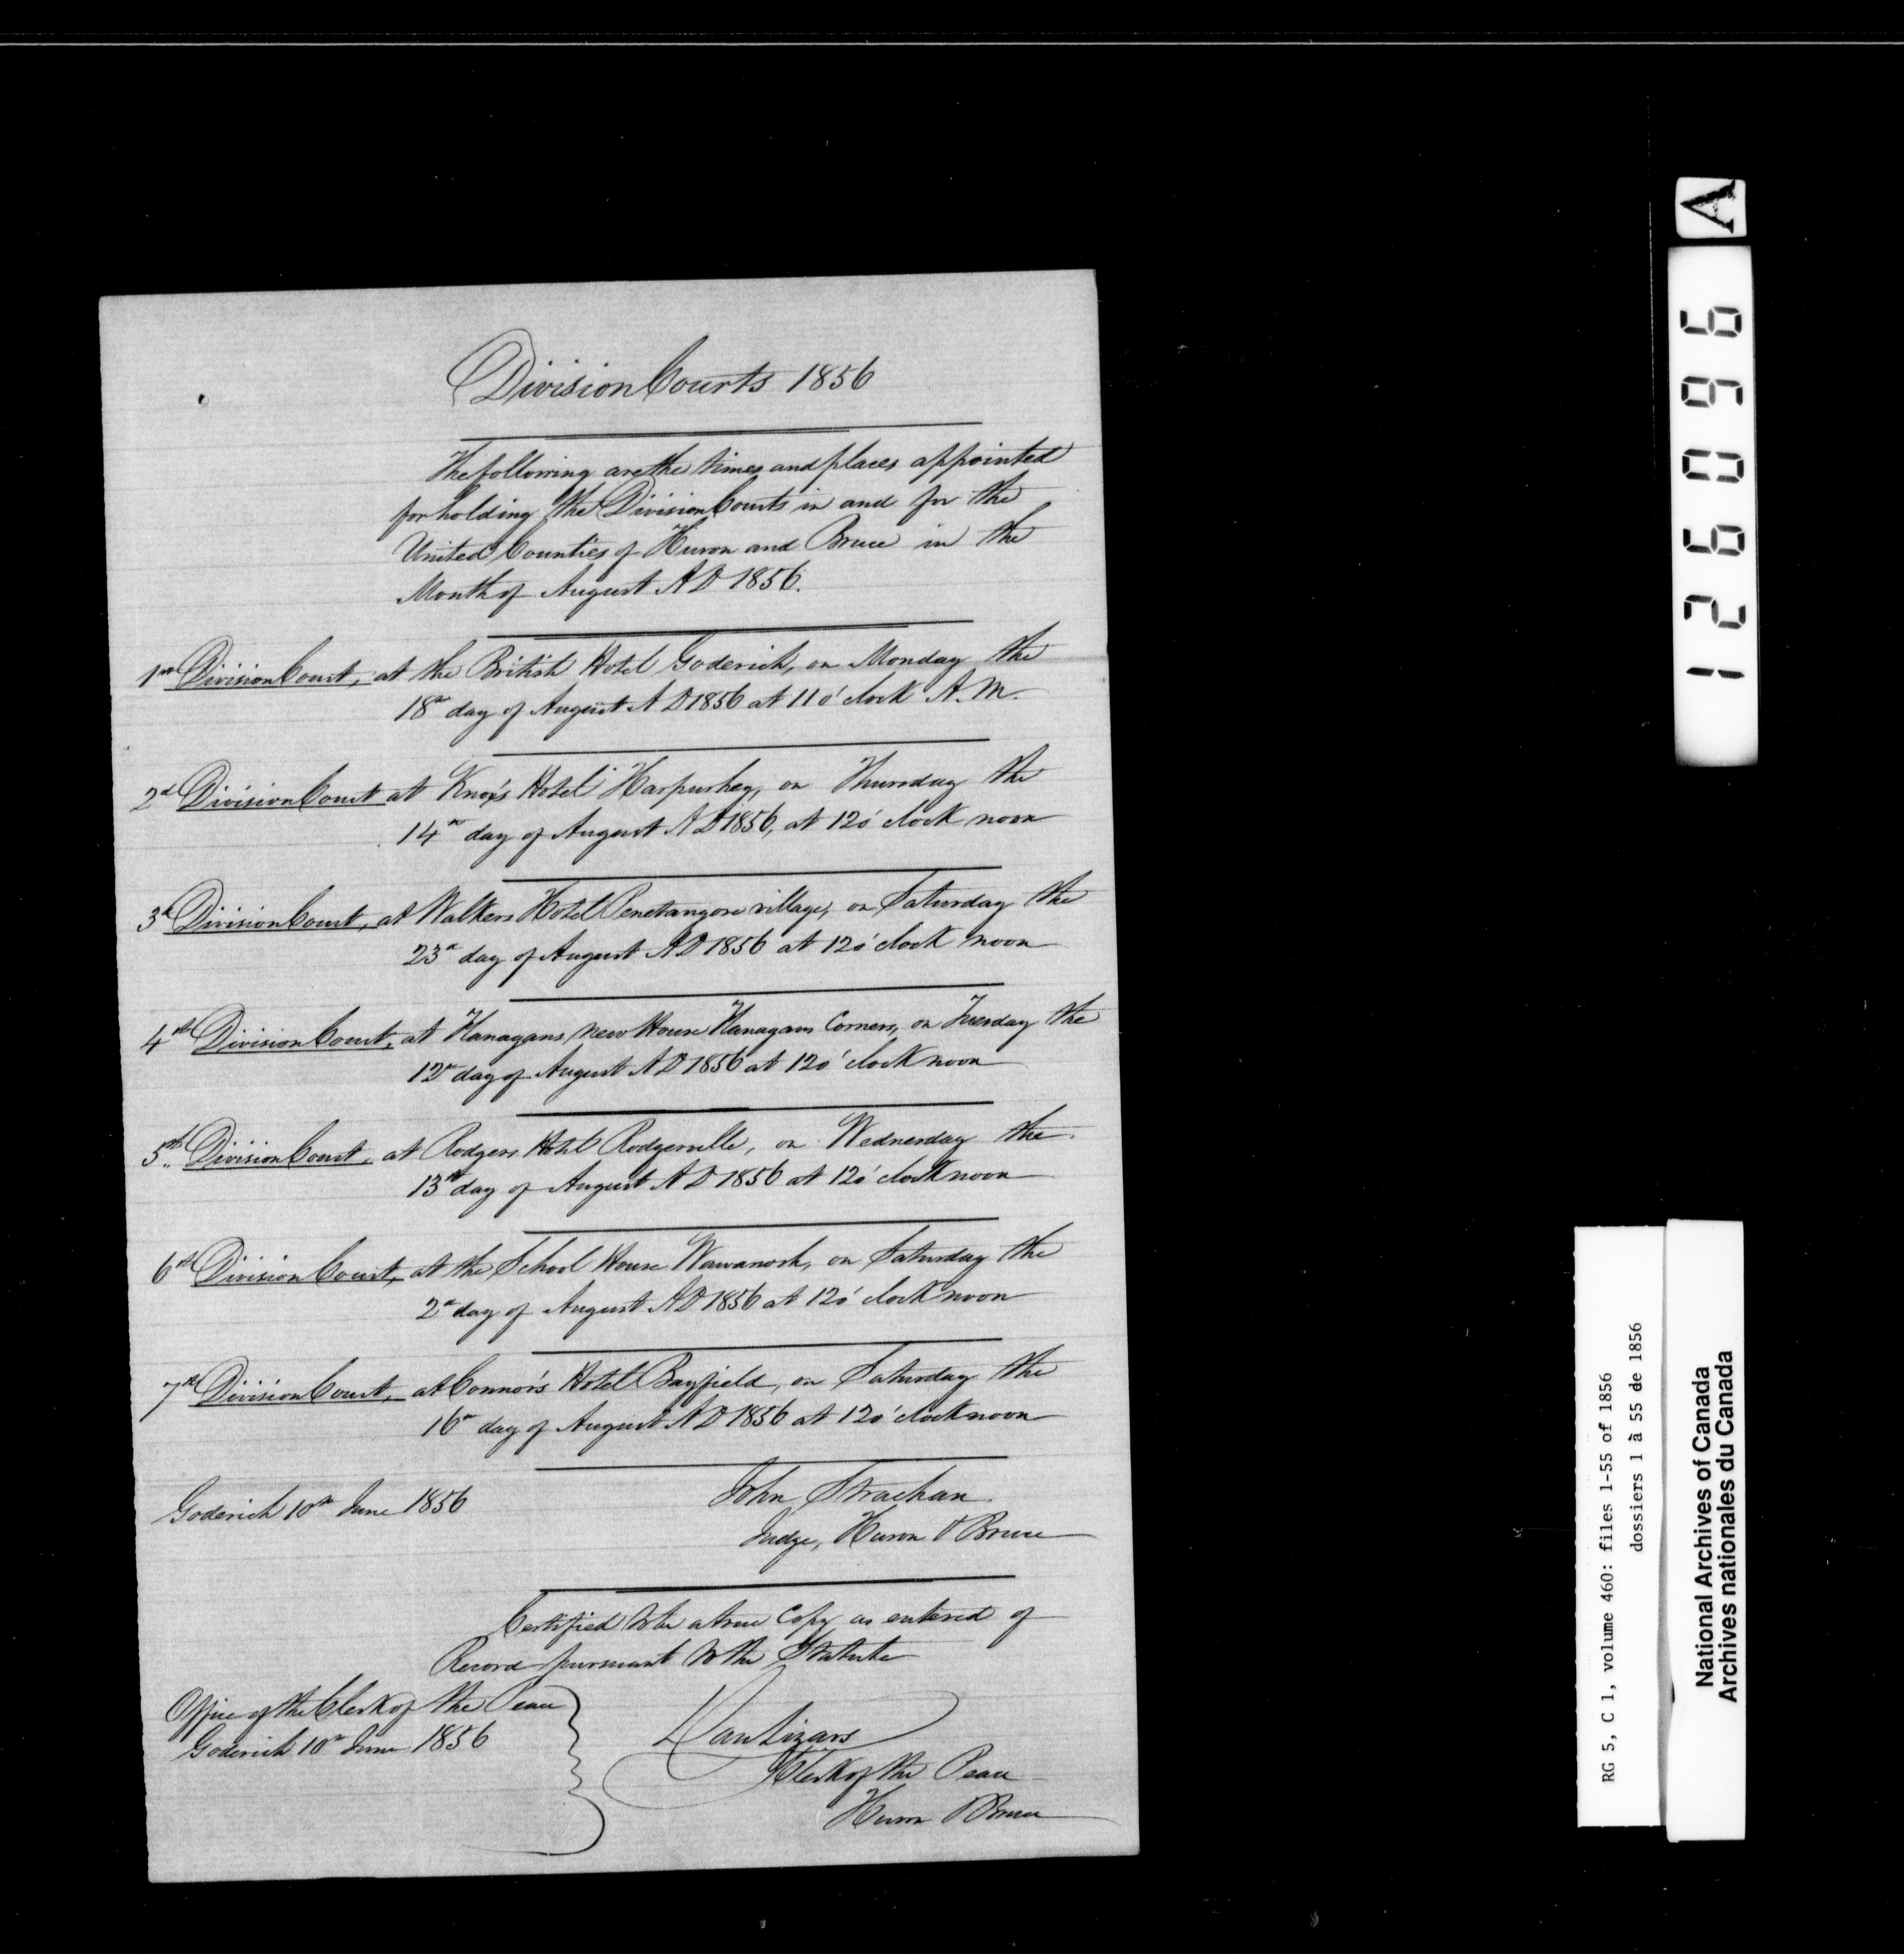 Division Courts 1856
The following are the times and places appointed
for holding the Division Courts in and for the
United Counties of Huron and Bruce in the
Month of August A D 1856.
1st Division Court, at the British Hotel Goderich, on Monday the
18th day of August A D 1856 at 11 o'clock A.M.
2d Division Court at Knox's Hotel Harpurhey, on Thursday the
14th day of August A D 1856, at 12 o'clock noon
3d Division Court, at Walkers Hotel Penetangore village, on Saturday the
23d day of August A D 1856 at 12 o'clock noon
4th Division Court, at Flanagans new House Flanagans Corners, on Tuesday the
12th day of August A D 1856 at 12 o'clock noon
5th Division Court, at Rodgers Hotel Rodgerville, on Wednesday the
13th day of August A D 1856 at 12 o'clock noon
6th Division Court, at the School House Wawanosh, on Saturday the
2d day of August A D 1856 at 12 o'clock noon
7th Division Court, at Connor's Hotel Bayfield, on Saturday the
16th day of August A D 1856 at 12 o'clock noon
Goderich 10th June 1856
John Strachan
Judge, Huron & Bruce
Certified to be a true Copy as entered of
Record pursuant to the Statute
Office of the Clerk of the Peace
Goderich 10th June 1856
Dan Lizars
Clerk of the Peace
Huron & Bruce
A
126096
RG 5, C 1, volume 460: files 1-55 of 1856
dossiers 1 à 55 de 1856
National Archives of Canada
Archives nationales du Canada